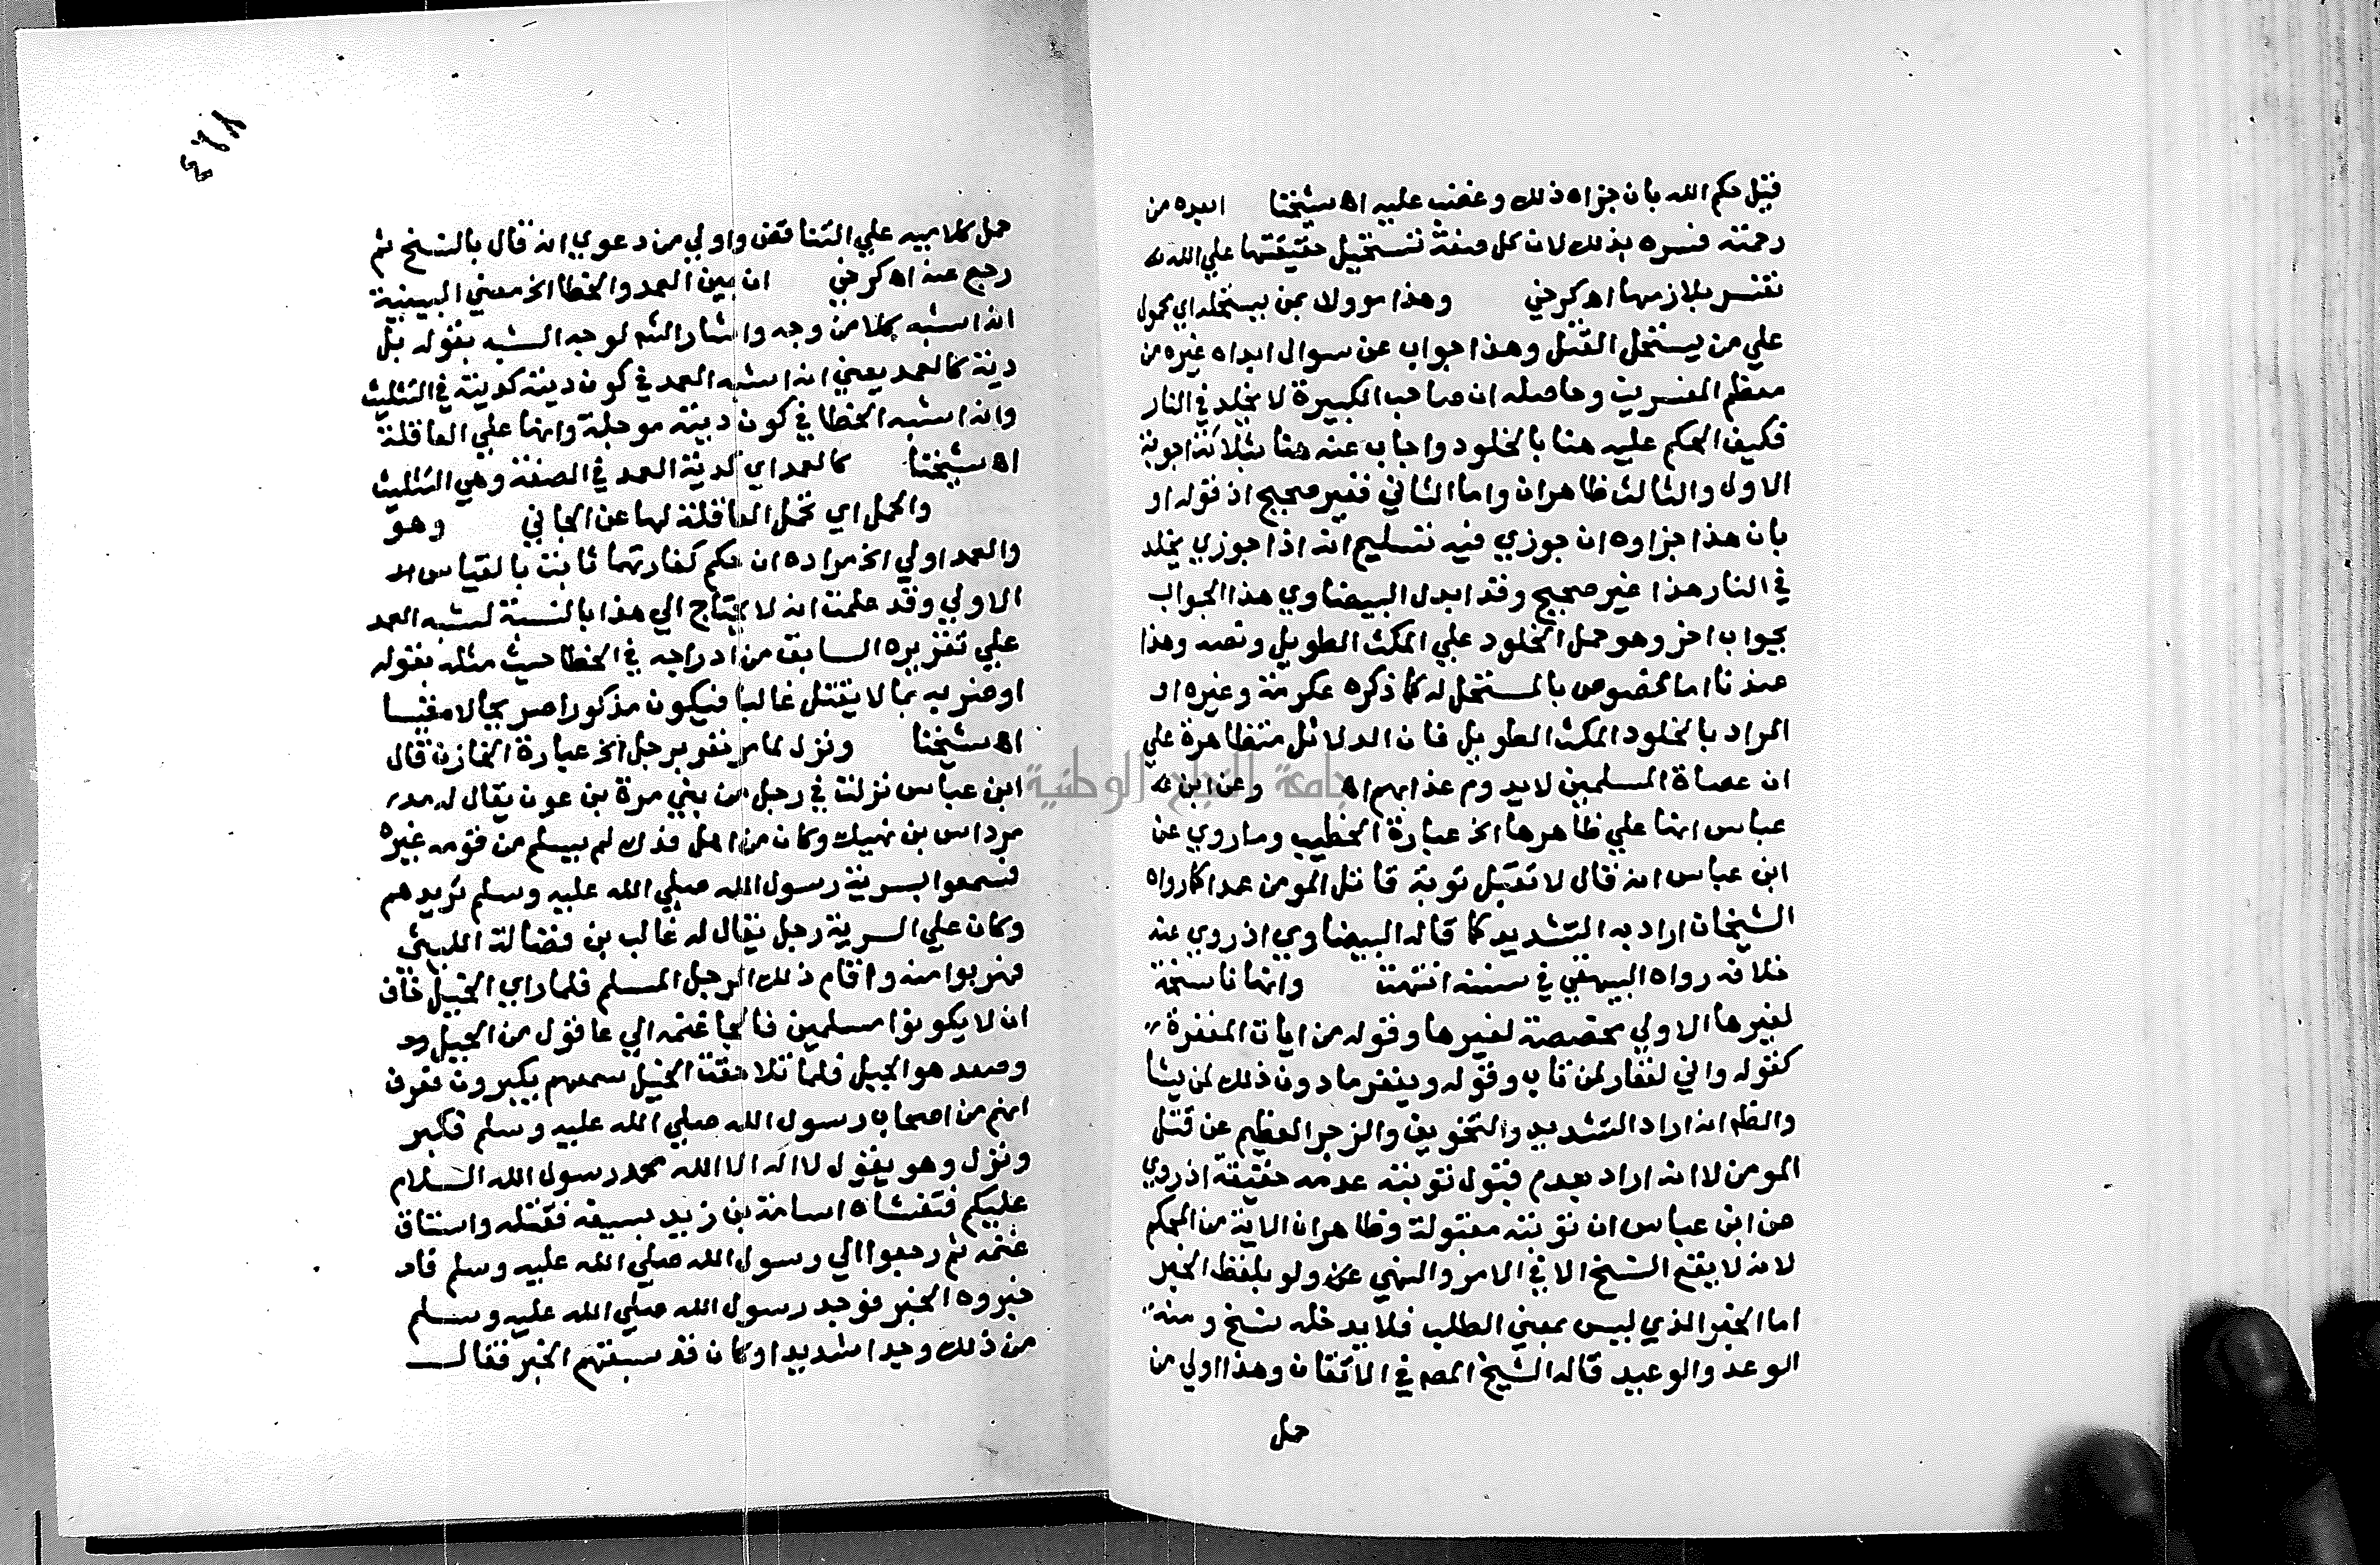 قيل حكم الله بان جزاه ذلك وغضب عليه اه شيخنا ابعده من
رحمته فسره بذلك لان كل صفة تستحيل حقيقتها علي الله
تفسر بلازمها اه كرخي وهذا موول بمن يستحله اي محمول
علي من يستحل القتل وهذا جواب عن سوال ابداه غيره من
معظم المفسرين وحاصله ان صاحب الكبيرة لا يخلد في النار
فكيف الحكم عليه هنا بالخلود واجاب عنه هنا بثلاثة اجوبة
الاول والثالث ظاهران واما الثاني فغير صحيح اذ قوله او
بان هذا جزاوه ان جوزي فيه تسليم انه اذا جوزي يخلد
في النار هذا غير صحيح وقد ابدل البيضاوي هذا الجواب
بجواب اخر وهو حمل الخلود علي المكث الطويل ونصه وهذا
عندنا اما مخصوص بالمستحل له كما ذكره عكرمة وغيره او
المراد بالخلود المكث الطويل فان الدلائل متظاهرة علي
ان عصاة المسلمين لا يدوم عذابهم اه وعن ابن
عباس انها علي ظاهرها الخ عبارة الخطيب وما روي عن
ابن عباس انه قال لا تقبل توبة قاتل المومن عمدا كما رواه
الشيخان اراد به التشديد كما قاله البيضاوي اذ روي عنه
خلافه رواه البيهقي في سننه انتهت وانها ناسخة
لغيرها الاولي مخصصة لغيرها وقوله من ايات المغفرة
كقوله واني لغفار لمن تاب وقوله ويغفر ما دون ذلك لمن يشا
والظم انه اراد التشديد والتخويف والزجر العظيم عن قتل
المومن لا انه اراد بعدم قبول توبته عدمه حقيقة اذ روي
عن ابن عباس ان توبته مقبولة وظاهر ان الاية من المحكم
لانه لا يقع النسخ الا في الامر والنهي ولو بلفظ الخبر
اما الخبر الذي ليس بمعني الطلب فلا يدخله نسخ ومنه
الوعد والوعيد قاله الشيخ المصم في الاتقان وهذا اولي من
حمل
٤٦٨
حمل كلاميه علي التناقض واولي من دعوي انه قال بالنسخ ثم
رجع عنه اه كرخي ان بين العمد والخطا الخ معني البينية
انه اشبه كلا من وجه واشار الشم لوجه الشبه بقوله بل
دية كالعمد يعني انه اشبه العمد في كون دينه كديته في التثليث
وانه اشبه الخطا في كون ديته موجلة وانها علي العاقلة
اه شيخنا كالعمد اي كدية العمد في الصفة وهي التثليث
والحمل اي تحمل العاقلة لها عن الجاني وهو
والعمد اولي الخ مراده ان حكم كفارتهما ثابت بالقياس
الاولي وقد علمت انه لا يحتاج الي هذا بالنسبة لشبه العمد
علي تقريره السابق من ادراجه في الخطا حيث مثله بقوله
او ضربه بما لا يقتل غالبا فيكون مذكورا صريحا لا مقيسا
اه شيخنا ونزل لما مر نفر برجل الخ عبارة الخازن قال
ابن عباس نزلت في رجل من بني مرة بن عون يقال له
مرداس بن نهيك وكان من اهل فدك لم يسلم من قومه غيره
فسمعوا بسرية رسول الله صلي الله عليه وسلم تريدهم
وكان علي السرية رجل يقال له غالب بن فضالة الليثي
فهربوا منه واقام ذلك الرجل المسلم فلما راي الخيل خاف
ان لا يكونوا مسلمين فالجا غنمه الي عاقول من الجبل
وصعد هو الجبل فلما تلاحقت الخيل سمعهم يكبرون فعرف
انهم من اصحاب رسول الله صلي الله عليه وسلم فكبر
ونزل وهو يقول لا اله الا الله محمد رسول الله السلام
عليكم فتغشاه اسامة بن زيد بسيفه فقتله واستاق
غنمه ثم رجعوا الي رسول الله صلي الله عليه وسلم فا
خبروه الخبر فوجد رسول الله صلي الله عليه وسلم
من ذلك وجدا شديدا وكان قد سبقهم الخبر فقال
جامعة النجاح الوطنية